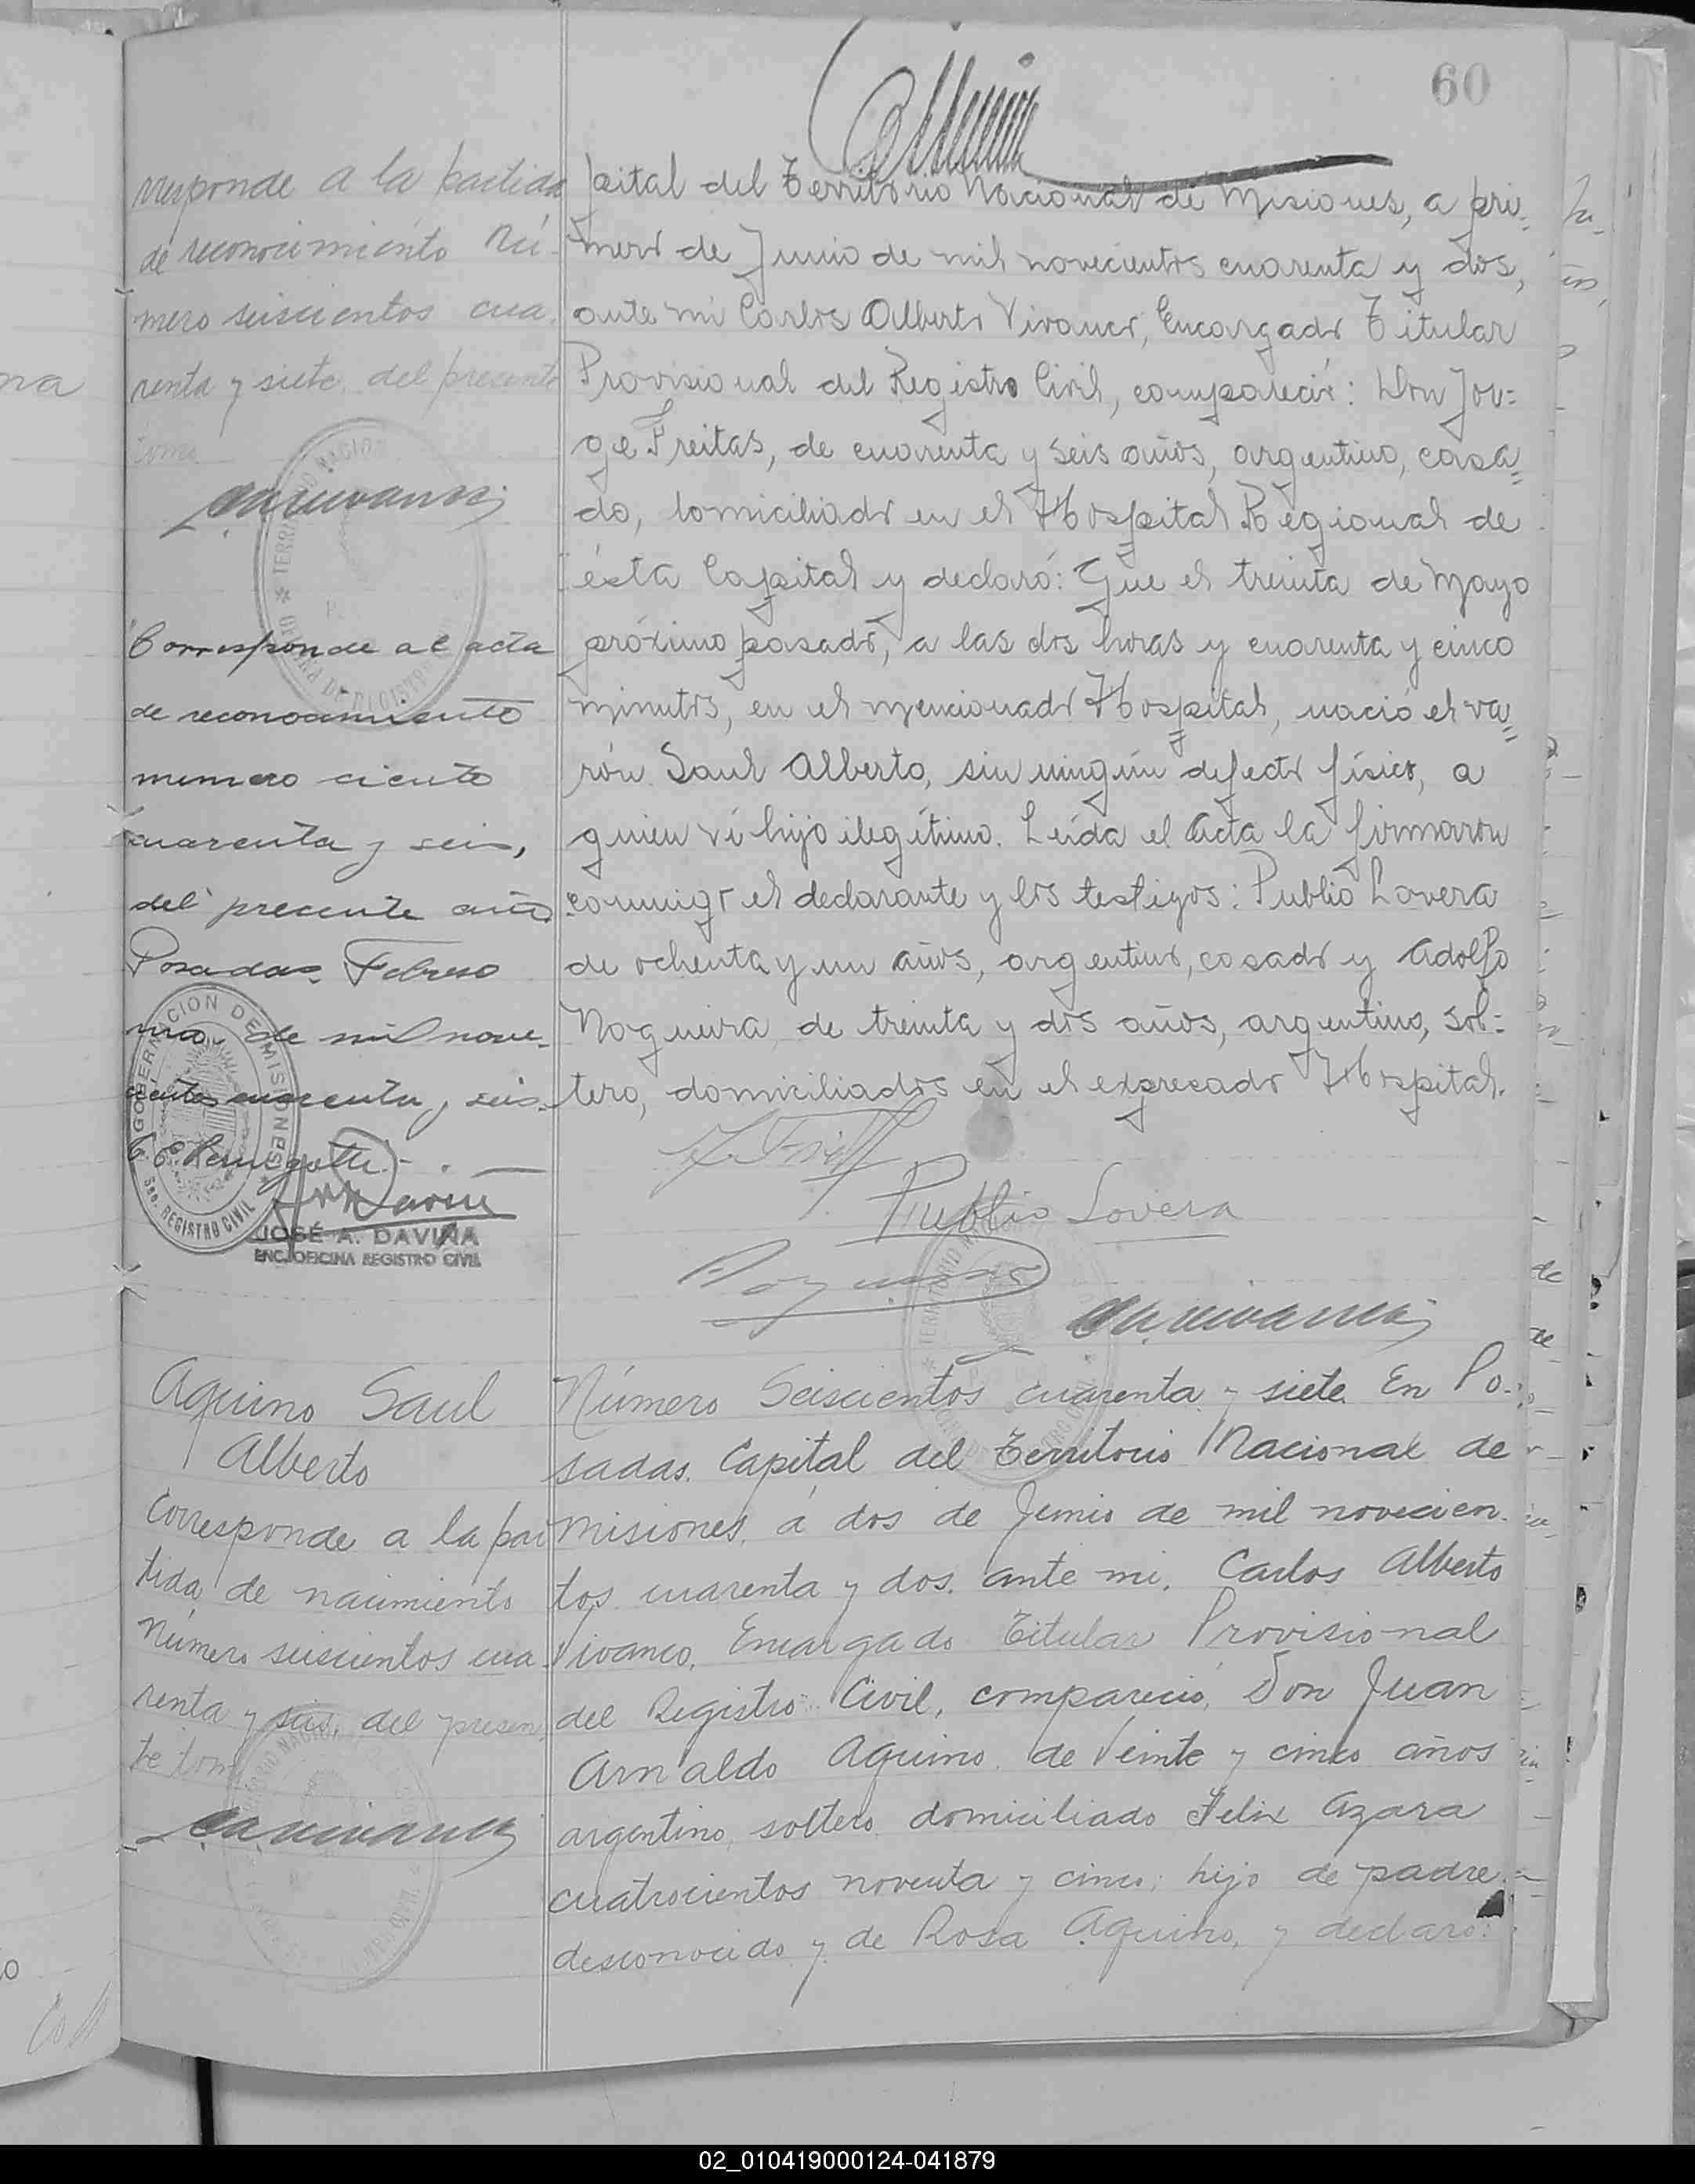 60
rresponde a la partida
de reconocimiento Nú-
mero seiscientos cua-
renta y siete, del presente
tomo
Corresponde al acta
de reconocimiento
numero ciento
cuarenta y seis,
del presente año.
Posadas, Febrero
uno de mil nove-
cientos cuarenta y seis.
GOBERNACION DE MISIONES
Sec. REGISTRO CIVIL
JOSÉ A. DAVIÑA
ENC. OFICINA REGISTRO CIVIL
pital del Territorio Nacional de Misiones, a pri-
mero de Junio de mil novecientos cuarenta y dos,
ante mi Carlos Alberto Vivanco, Encargado Titular
Provisional del Registro Civil, compareció: Don Jor=
ge Freitas, de cuarenta y seis años, argentino, casa=
do, domiciliado en el Hospital Regional de
ésta Capital y declaró: Que el treinta de Mayo
próximo pasado, a las dos horas y cuarenta y cinco
minutos, en el mencionado Hospital, nació el va=
rón Saul Alberto, sin ningún defecto físico, a
quien ví hijo ilegítimo. Leída el Acta la firmaron
conmigo el declarante y los testigos: Publio Lovera
de ochenta y un años, argentino, casado y Adolfo
Nogueira, de treinta y dos años, argentino, sol=
tero, domiciliados en el expresado Hospital.
Publio Lovera
Aquino Saul
Alberto
Corresponde a la par
tida de nacimiento
Número seiscientos cua-
renta y seis, del presen
te tomo
Número Seiscientos cuarenta y siete. En Po-
sadas. Capital del Territorio Nacional de
Misiones, á dos de Junio de mil novecien-
tos cuarenta y dos. ante mi. Carlos Alberto
Vivanco, Encargado Titular Provisional
del Registro Civil, compareció, Don Juan
Arnaldo Aquino, de Veinte y cinco años
argentino, soltero domiciliado Felix Azara
cuatrocientos noventa y cinco; hijo de padre
desconocido y de Rosa Aquino, y declaro:
02_010419000124-041879